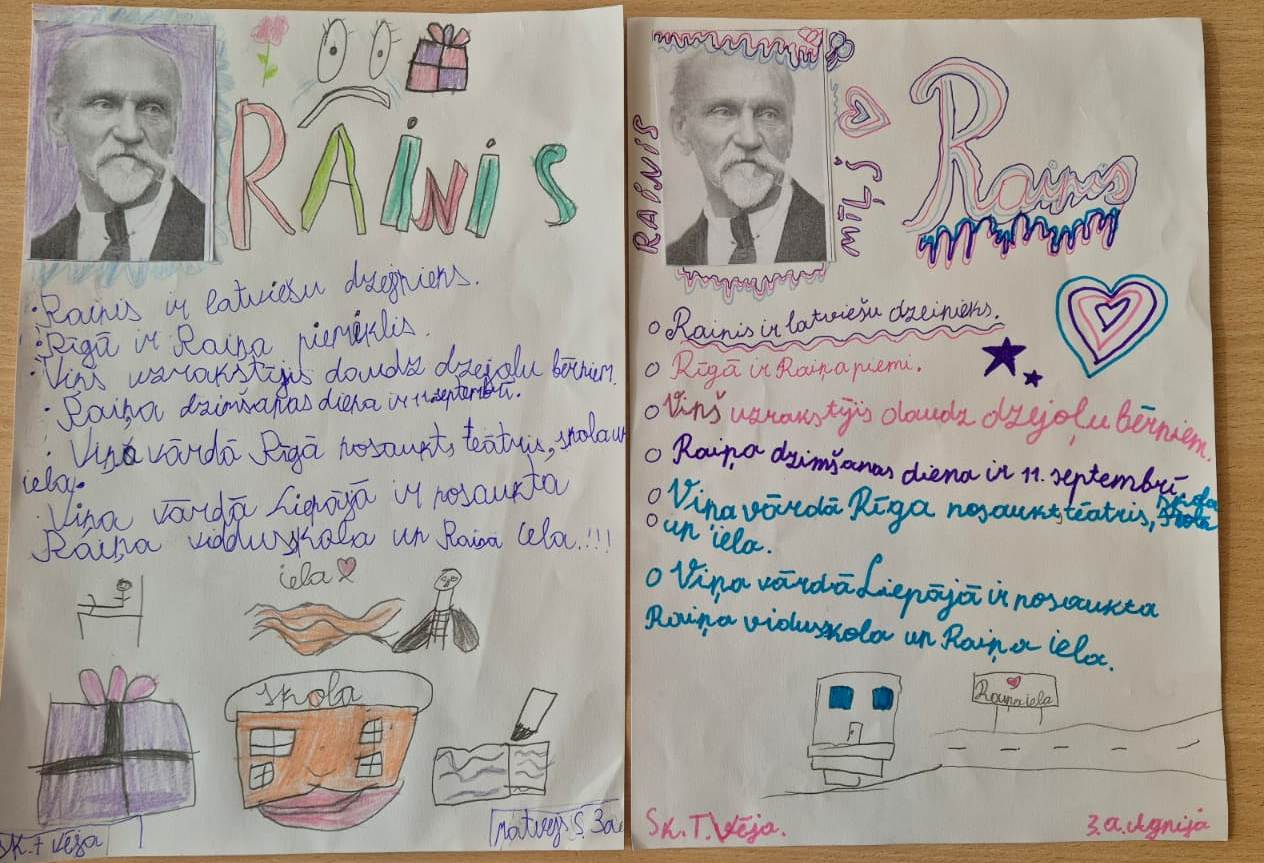 RAINIS
• Rainis ir latviešu dzejnieks.
• Rīgā ir Raiņa piemineklis.
• Viņš uzrakstījis daudz dzejoļu bērniem.
• Raiņa dzimšanas diena ir 11 septembrī.
Viņa vārdā Rīgā nosaukts teātris, skola un
iela.
Viņa vārdā Liepājā ir nosaukta
Raiņa vidduskola un Raiņa iela.!!!
iela
skola
SK. T Vēja
Matvejs S. 3a
RAINIS
MĪĻŠ
Rainis
Rainis ir latviešu dzeinieks.
Rīgā ir Raiņa piemi.
Viņš uzrakstījis daudz dzejoļu bērniem.
Raiņa dzimšanas diena ir 11. septembrī
Viņa vārdā Rīga nosaukts teātris, skola
un iela.
Viņa vārdā Liepājā ir nosaukta
Raiņa viduskola un Raiņa iela.
Raiņa iela
Sk. T. Vēja.
3.a. Agnija